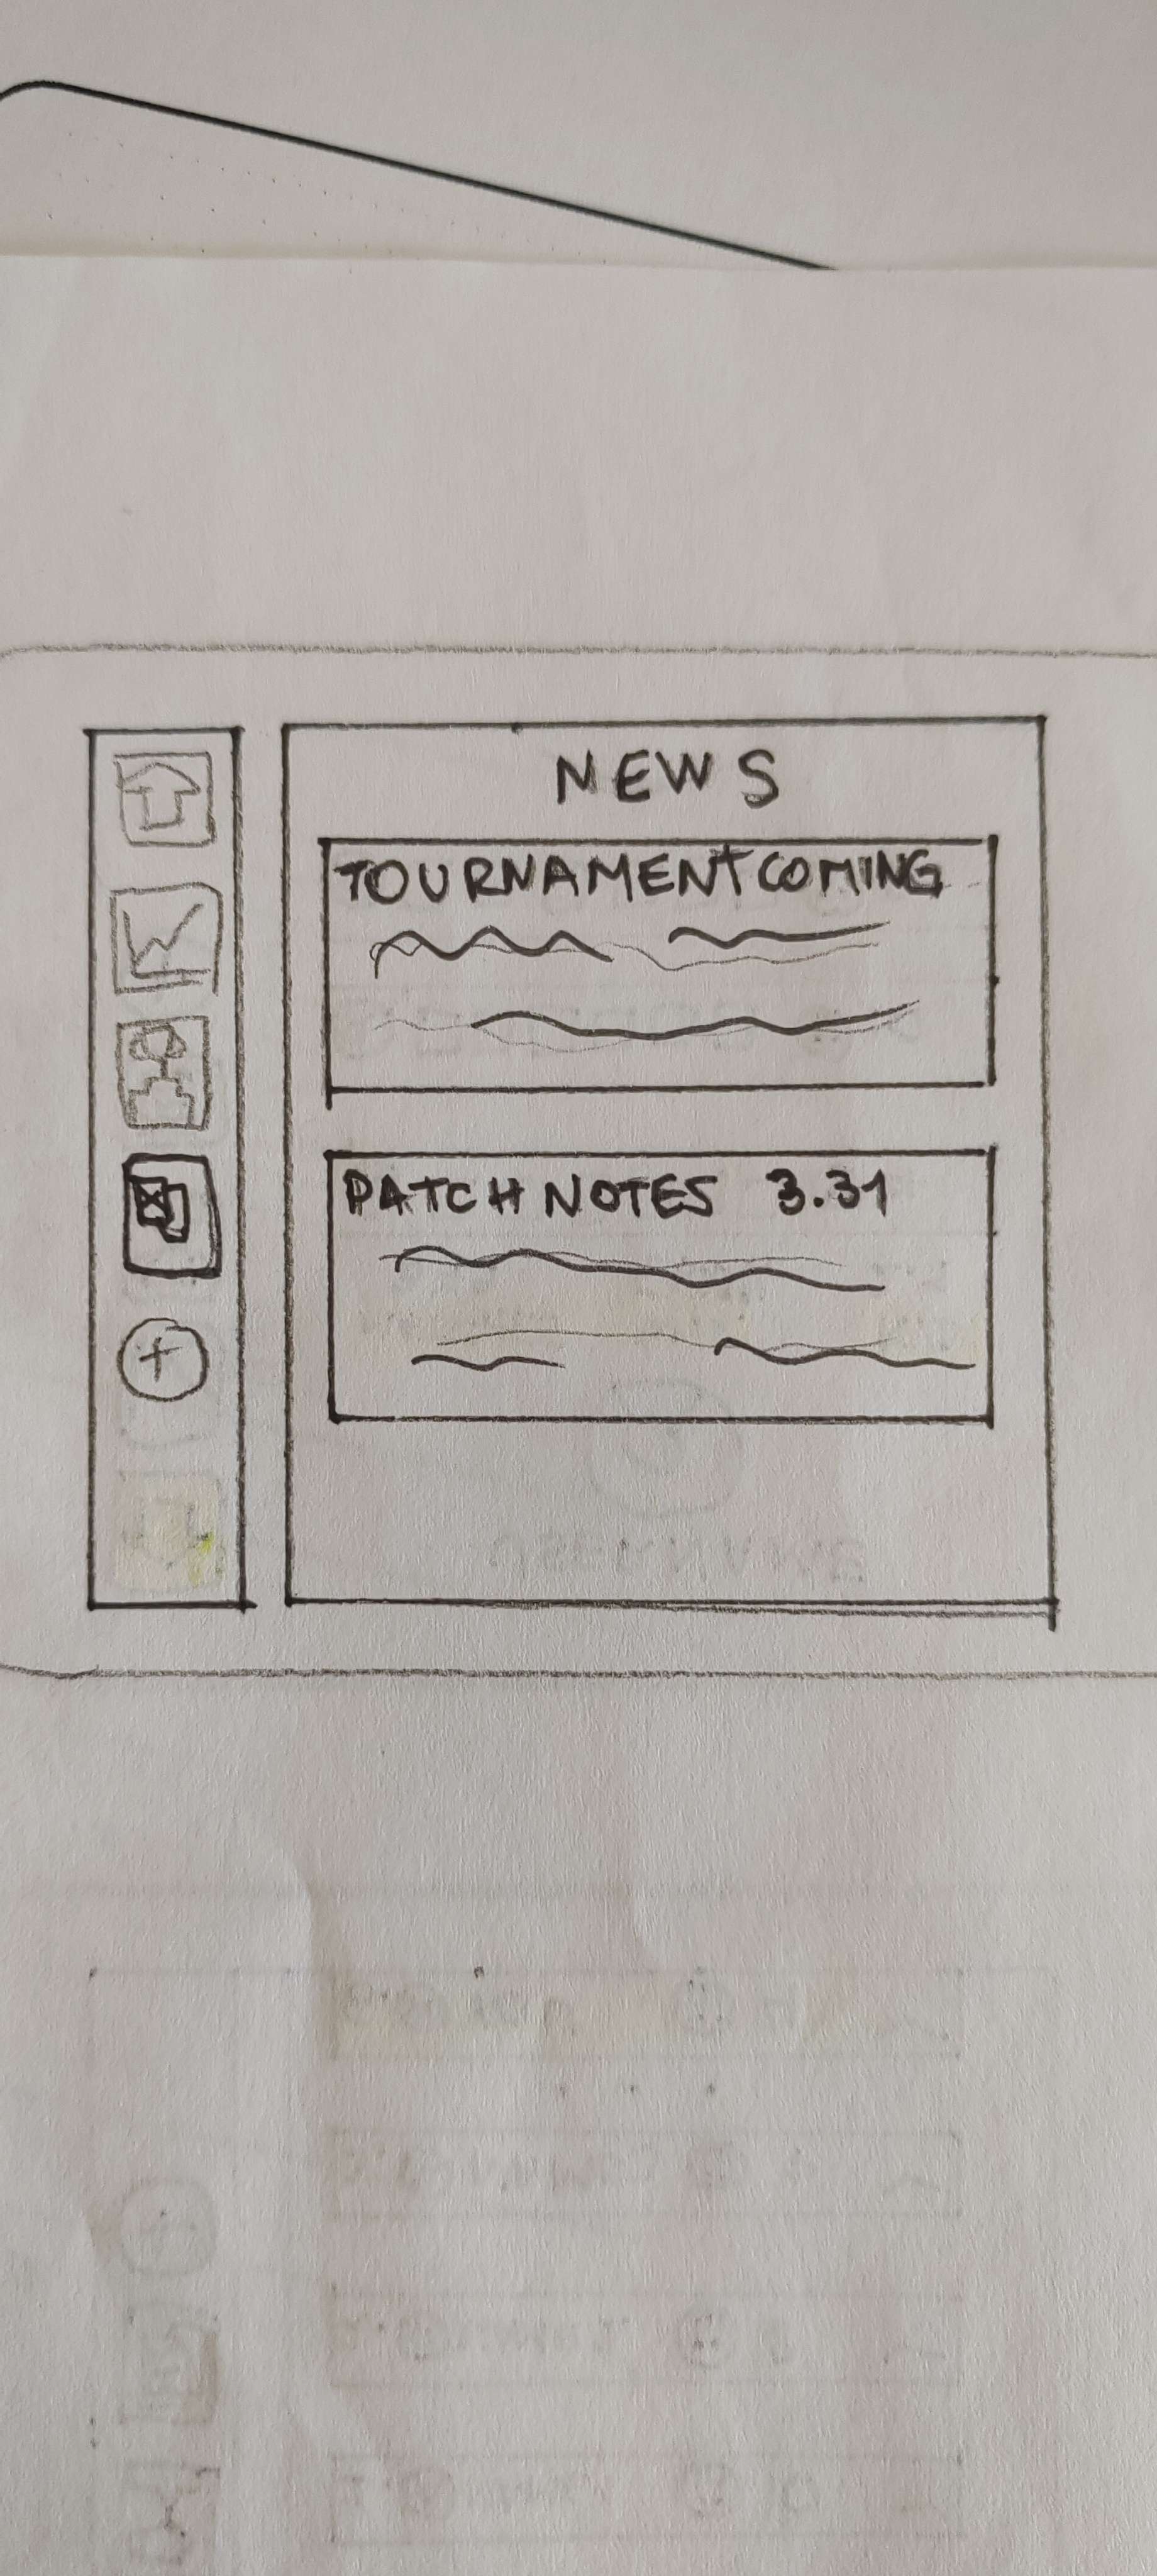 NEWS
TOURNAMENT COMING
PATCH NOTES 3.31